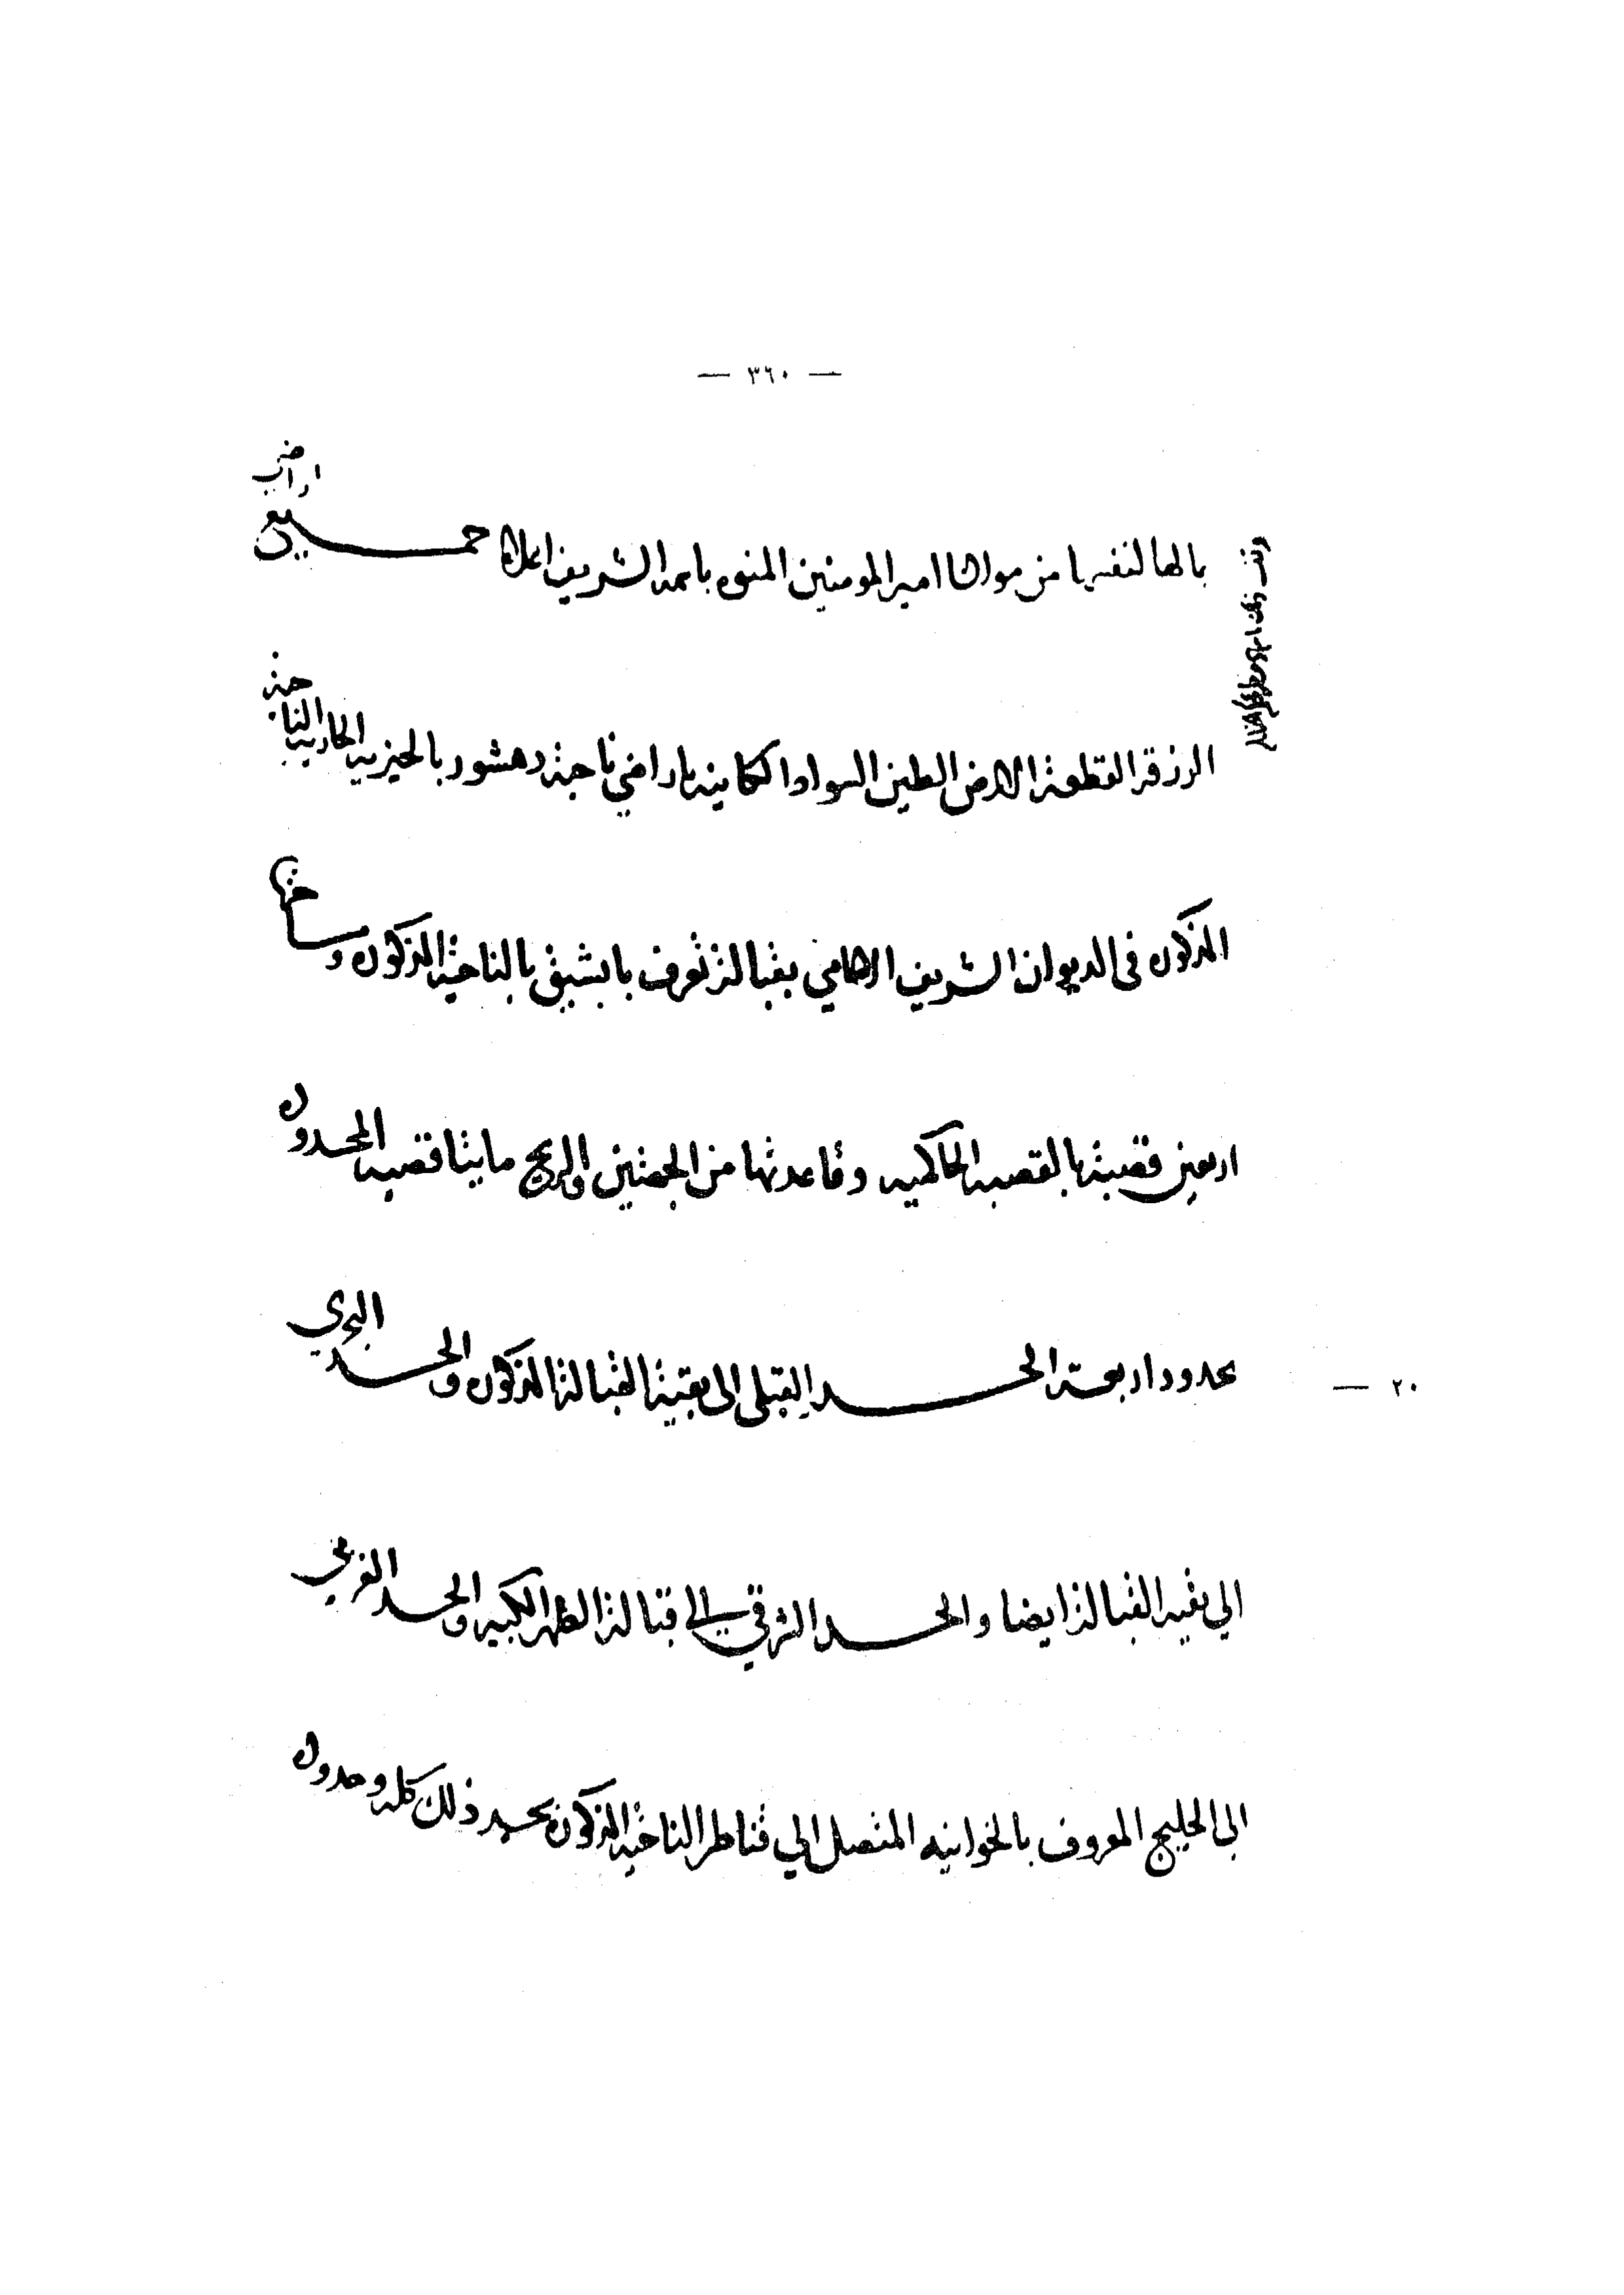 — ٣٦٠ —
بمالها لنفسها من مولانا امير المومنين المنوه باسمه الشريف اعلاه جميع اراضي
الرزقة القطعة الارض الطين السواد الكاينة باراضي ناحية دهشور بالجيزية الجارية الناحية
المذكورة في الديوان الشريف الامامي بقبالة تعرف بابشيق بالناحية المذكورة ومساحتها
اربعين قصبة بالقصبة الحاكمية وقاعدتها من الجهتين والريح مايتا قصبة المحدود
بحدود اربعة الحد القبلي الى بقية القبالة المذكورة والحد البحري
الي بقية القبالة ايضا والحد الشرقي الى قبالة الظهر الكبير والحد الغربي
الى الخليج المعروف بالخوانيه المتصل الي قناطر الناحية المذكورة بحد ذلك كله وحدوده
٢٠ —